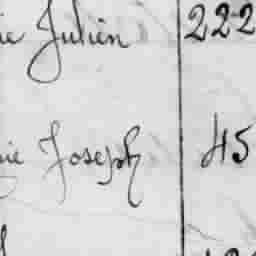 ie Julien 222
ie Joseph 45